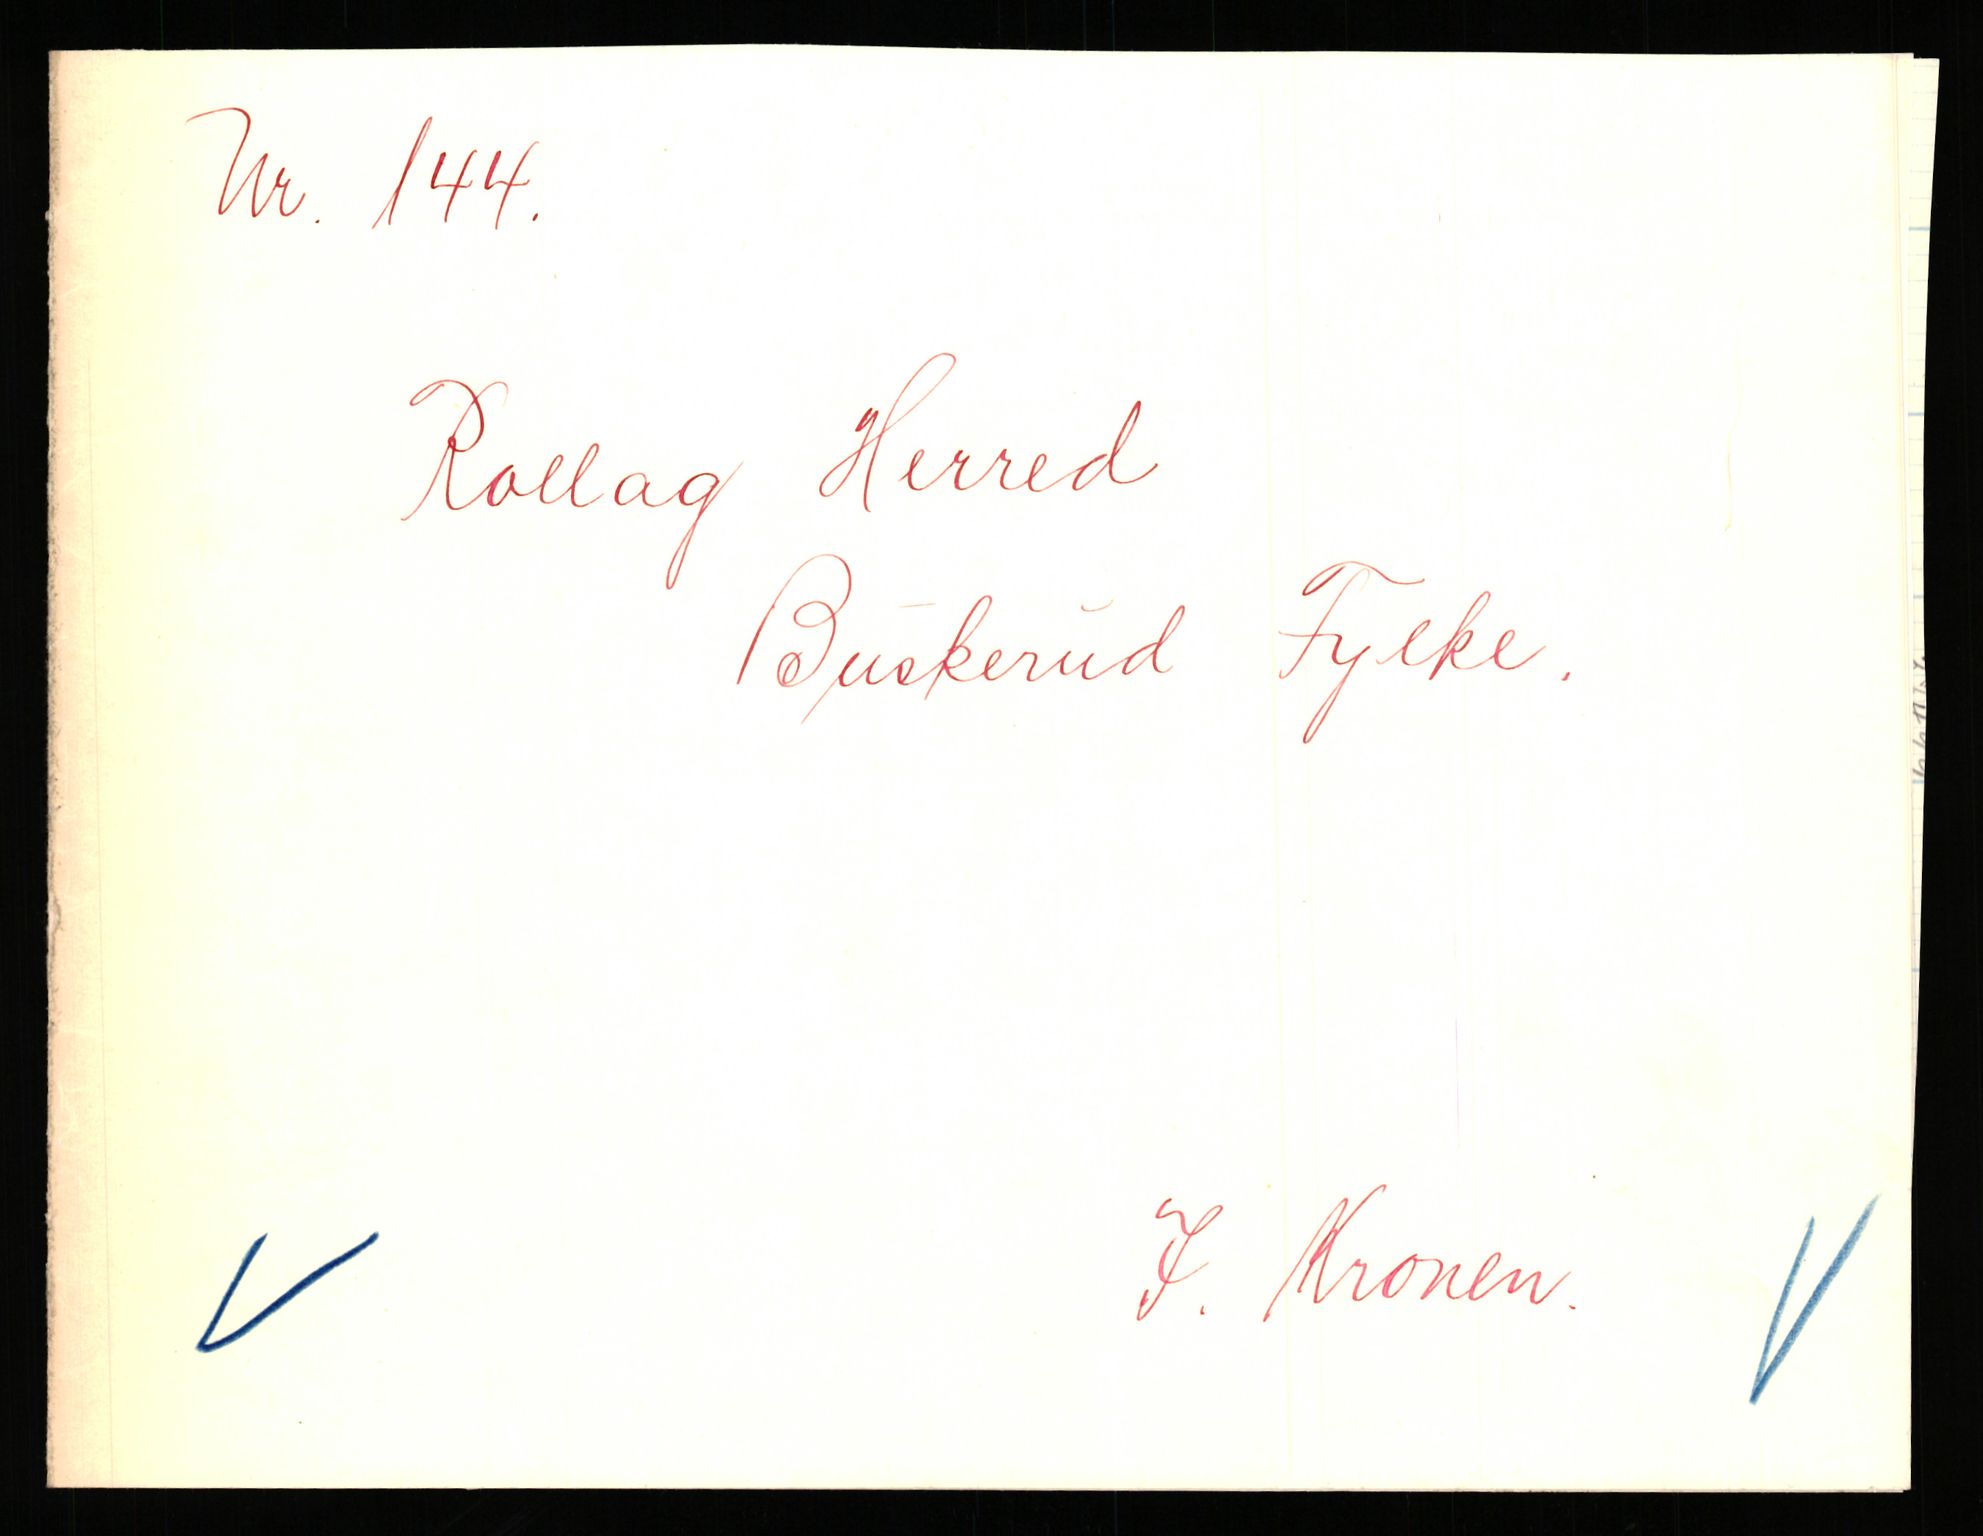 Nr. 144.
Rollag Herred
Buskerud Fylke.
Kronen.